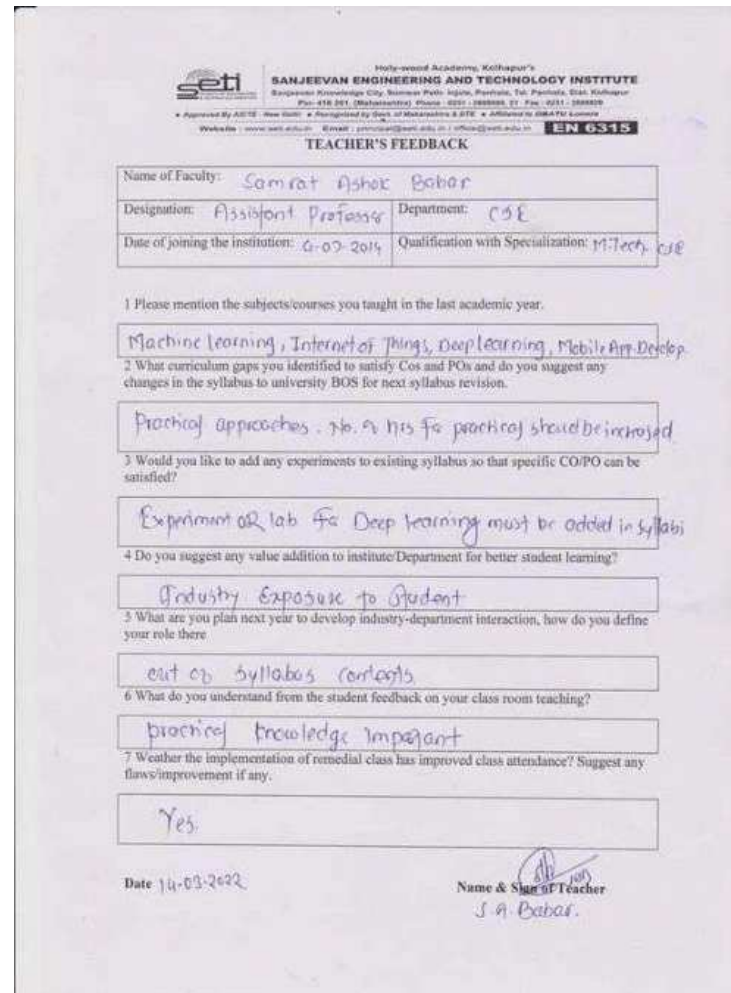 seti
Holy-wood Academy, Kolhapur's
SANJEEVAN ENGINEERING AND TECHNOLOGY INSTITUTE
Sanjeevan Knowledge City, Somwar Peth Injole, Panhala, Tal. Panhala, Dist. Kolhapur
Pin- 416 201. (Maharashtra) Phone : 0231 - Fax : 0231 -
• Approved By AICTE - New Delhi • Recognized by Govt. of Maharashtra & DTE • Affiliated to DBATU Lonere
Website : www.seti.edu.in Email : principal@seti.edu.in / office@seti.edu.in EN 6315
TEACHER'S FEEDBACK
Name of Faculty: Samrat Ashok Babar
Designation: Assistant Professor Department: CSE
Date of joining the institution: Qualification with Specialization: M.Tech. CSE
1 Please mention the subjects/courses you taught in the last academic year.
Machine learning, Internet of Things, Deep learning, Mobile App. Develop.
2 What curriculum gaps you identified to satisfy Cos and POs and do you suggest any
changes in the syllabus to university BOS for next syllabus revision.
Practical approaches. No. of hrs for practical should be increased
3 Would you like to add any experiments to existing syllabus so that specific CO/PO can be
satisfied?
Experiment OR lab for Deep learning must be added in syllabi
4 Do you suggest any value addition to institute/Department for better student learning?
Industry Exposure to Student
5 What are you plan next year to develop industry-department interaction, how do you define
your role there
out of syllabus contents
6 What do you understand from the student feedback on your class room teaching?
practical knowledge important
7 Weather the implementation of remedial class has improved class attendance? Suggest any
flaws/improvement if any.
Yes.
Date 14-03-2022
Name & Sign of Teacher
S. A. Babar.